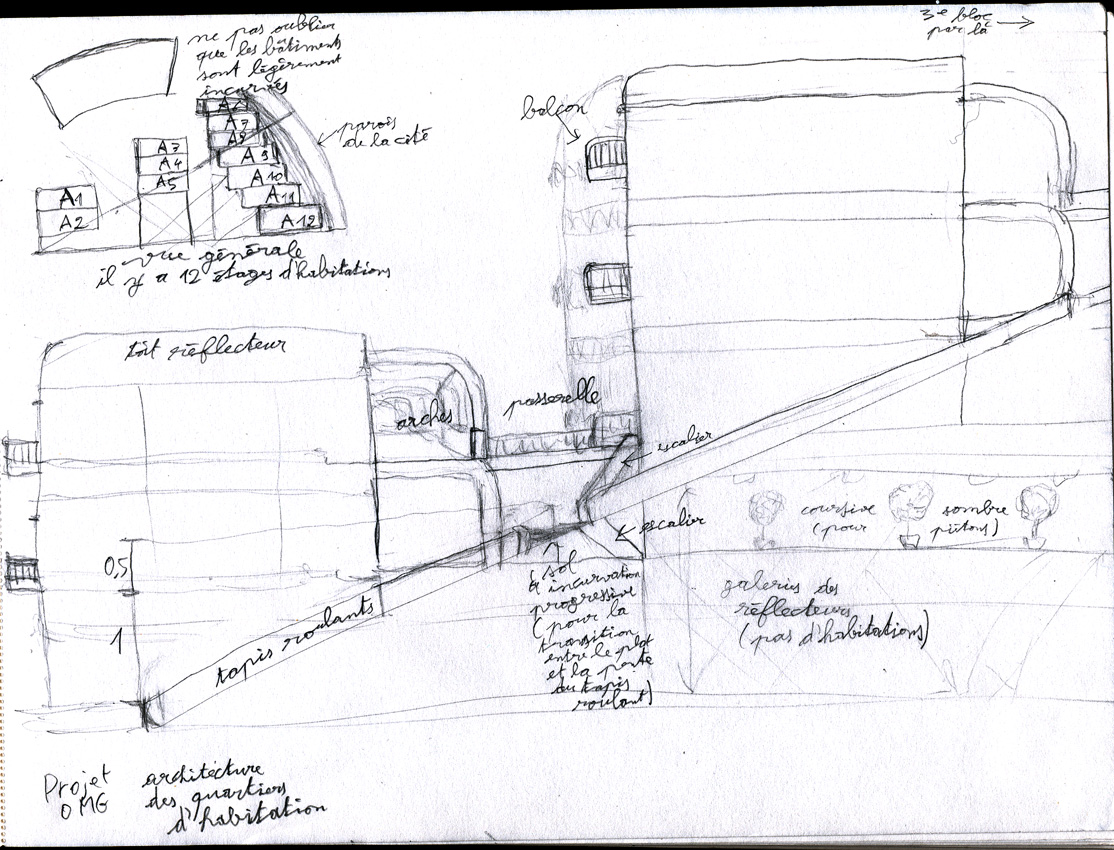 ne pas oublier
que les bâtiments
sont légèrement
incurvés
3e bloc
par là
parois
de la cité
balcon
A6
A7
A8
A9
A10
A11
A12
A3
A4
A5
A1
A2
vue générale
il y a 12 étages d'habitations
toit réflecteur
arches
passerelle
escalier
escalier
coursive sombre
(pour piétons)
0,5
1
tapis roulants
(sol
à incurvation
progressive
(pour la
transition
entre le plat
et la pente
du tapis
roulant)
galeries des
réflecteurs
(pas d'habitations)
Projet
OMG
architecture
des quartiers
d'habitation